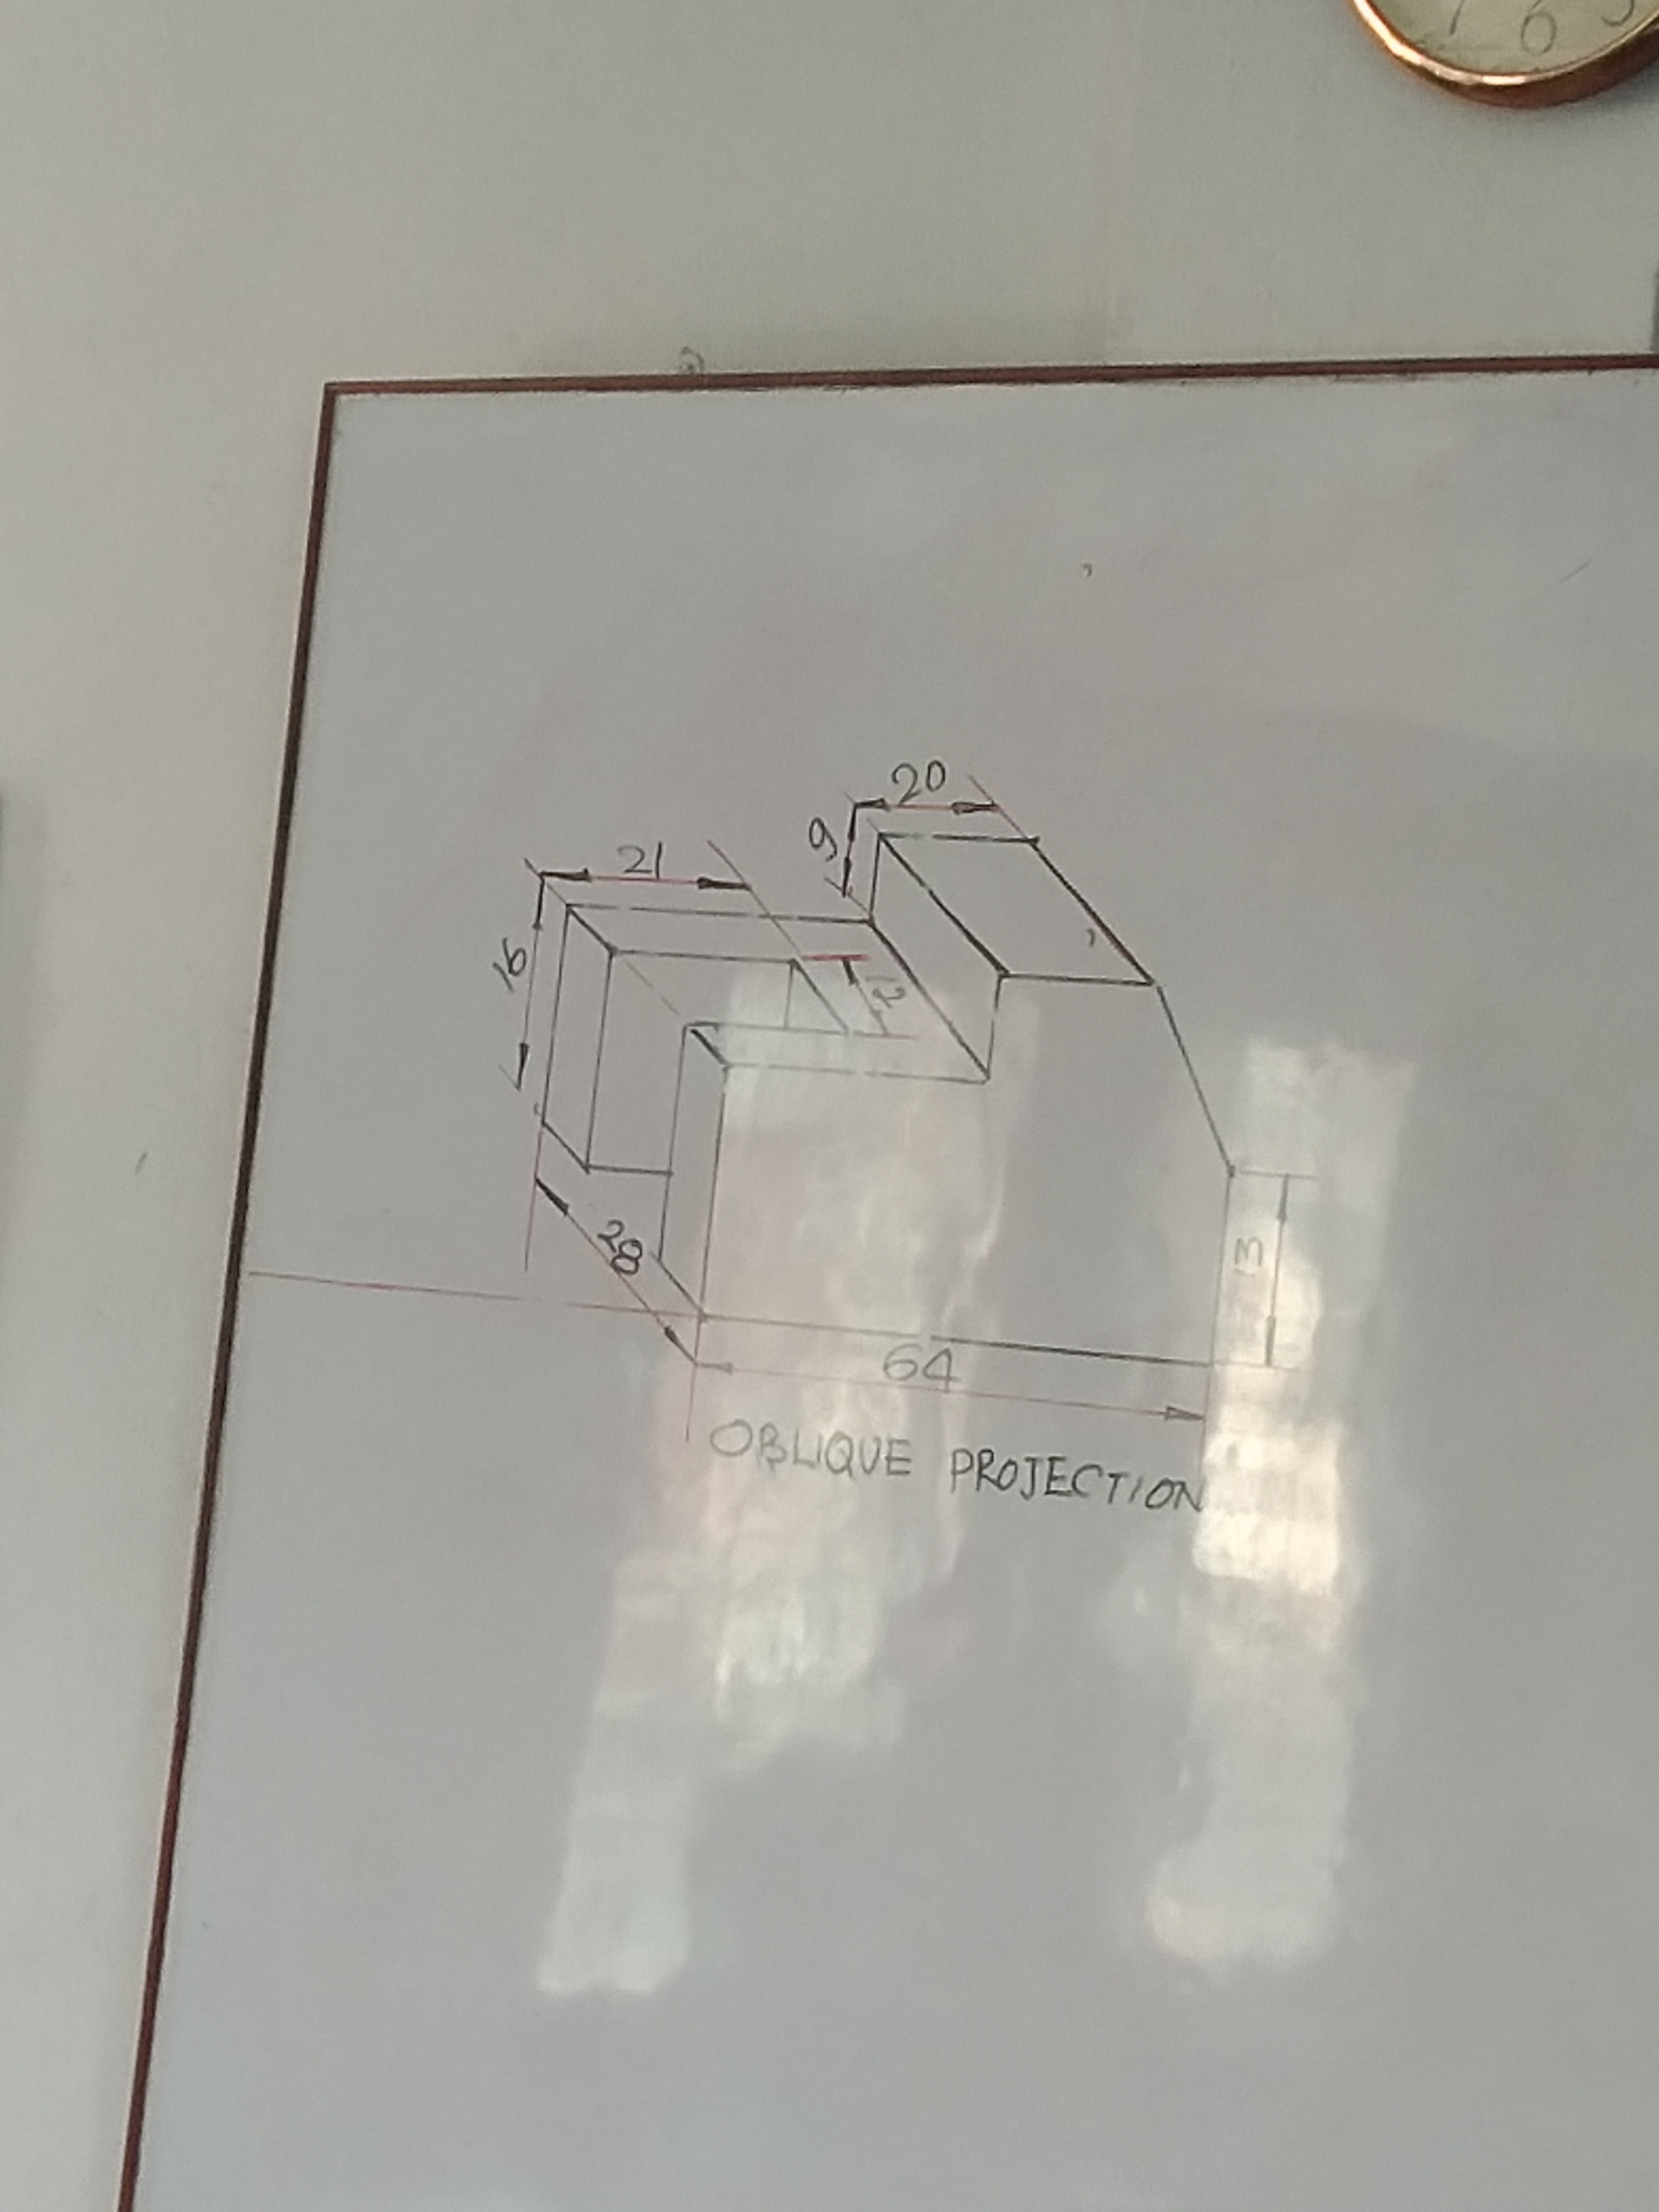 7 6 5
20
9
21
16
12
28
13
64
OBLIQUE PROJECTION